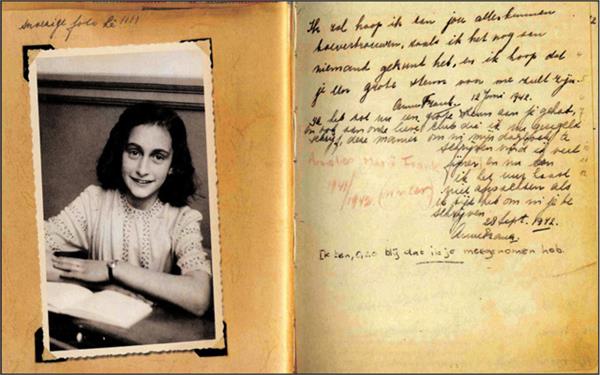 snoezige foto hè!!!!
Ik zal hoop ik aan jou alles kunnen
toevertrouwen, zoals ik het nog aan
niemand gekund heb, en ik hoop dat
je een grote steun voor me zult zijn.
Anne Frank. 12 Juni 1942.
Ik heb tot nu een grote steun aan je gehad,
en nog aan onze lieve club die ik nu geregeld
schrijf, deze manier om in mijn dagboek te
schrijven vind ik veel
fijner en nu kan
ik het uur haast
niet afwachten als
ik tijd heb om in je te
schrijven.
28 Sept. 1942.
Anne Frank.
Annelies Marie Frank
1941/
1942. (winter)
Ik ben, o, zo blij dat ik je meegenomen heb.